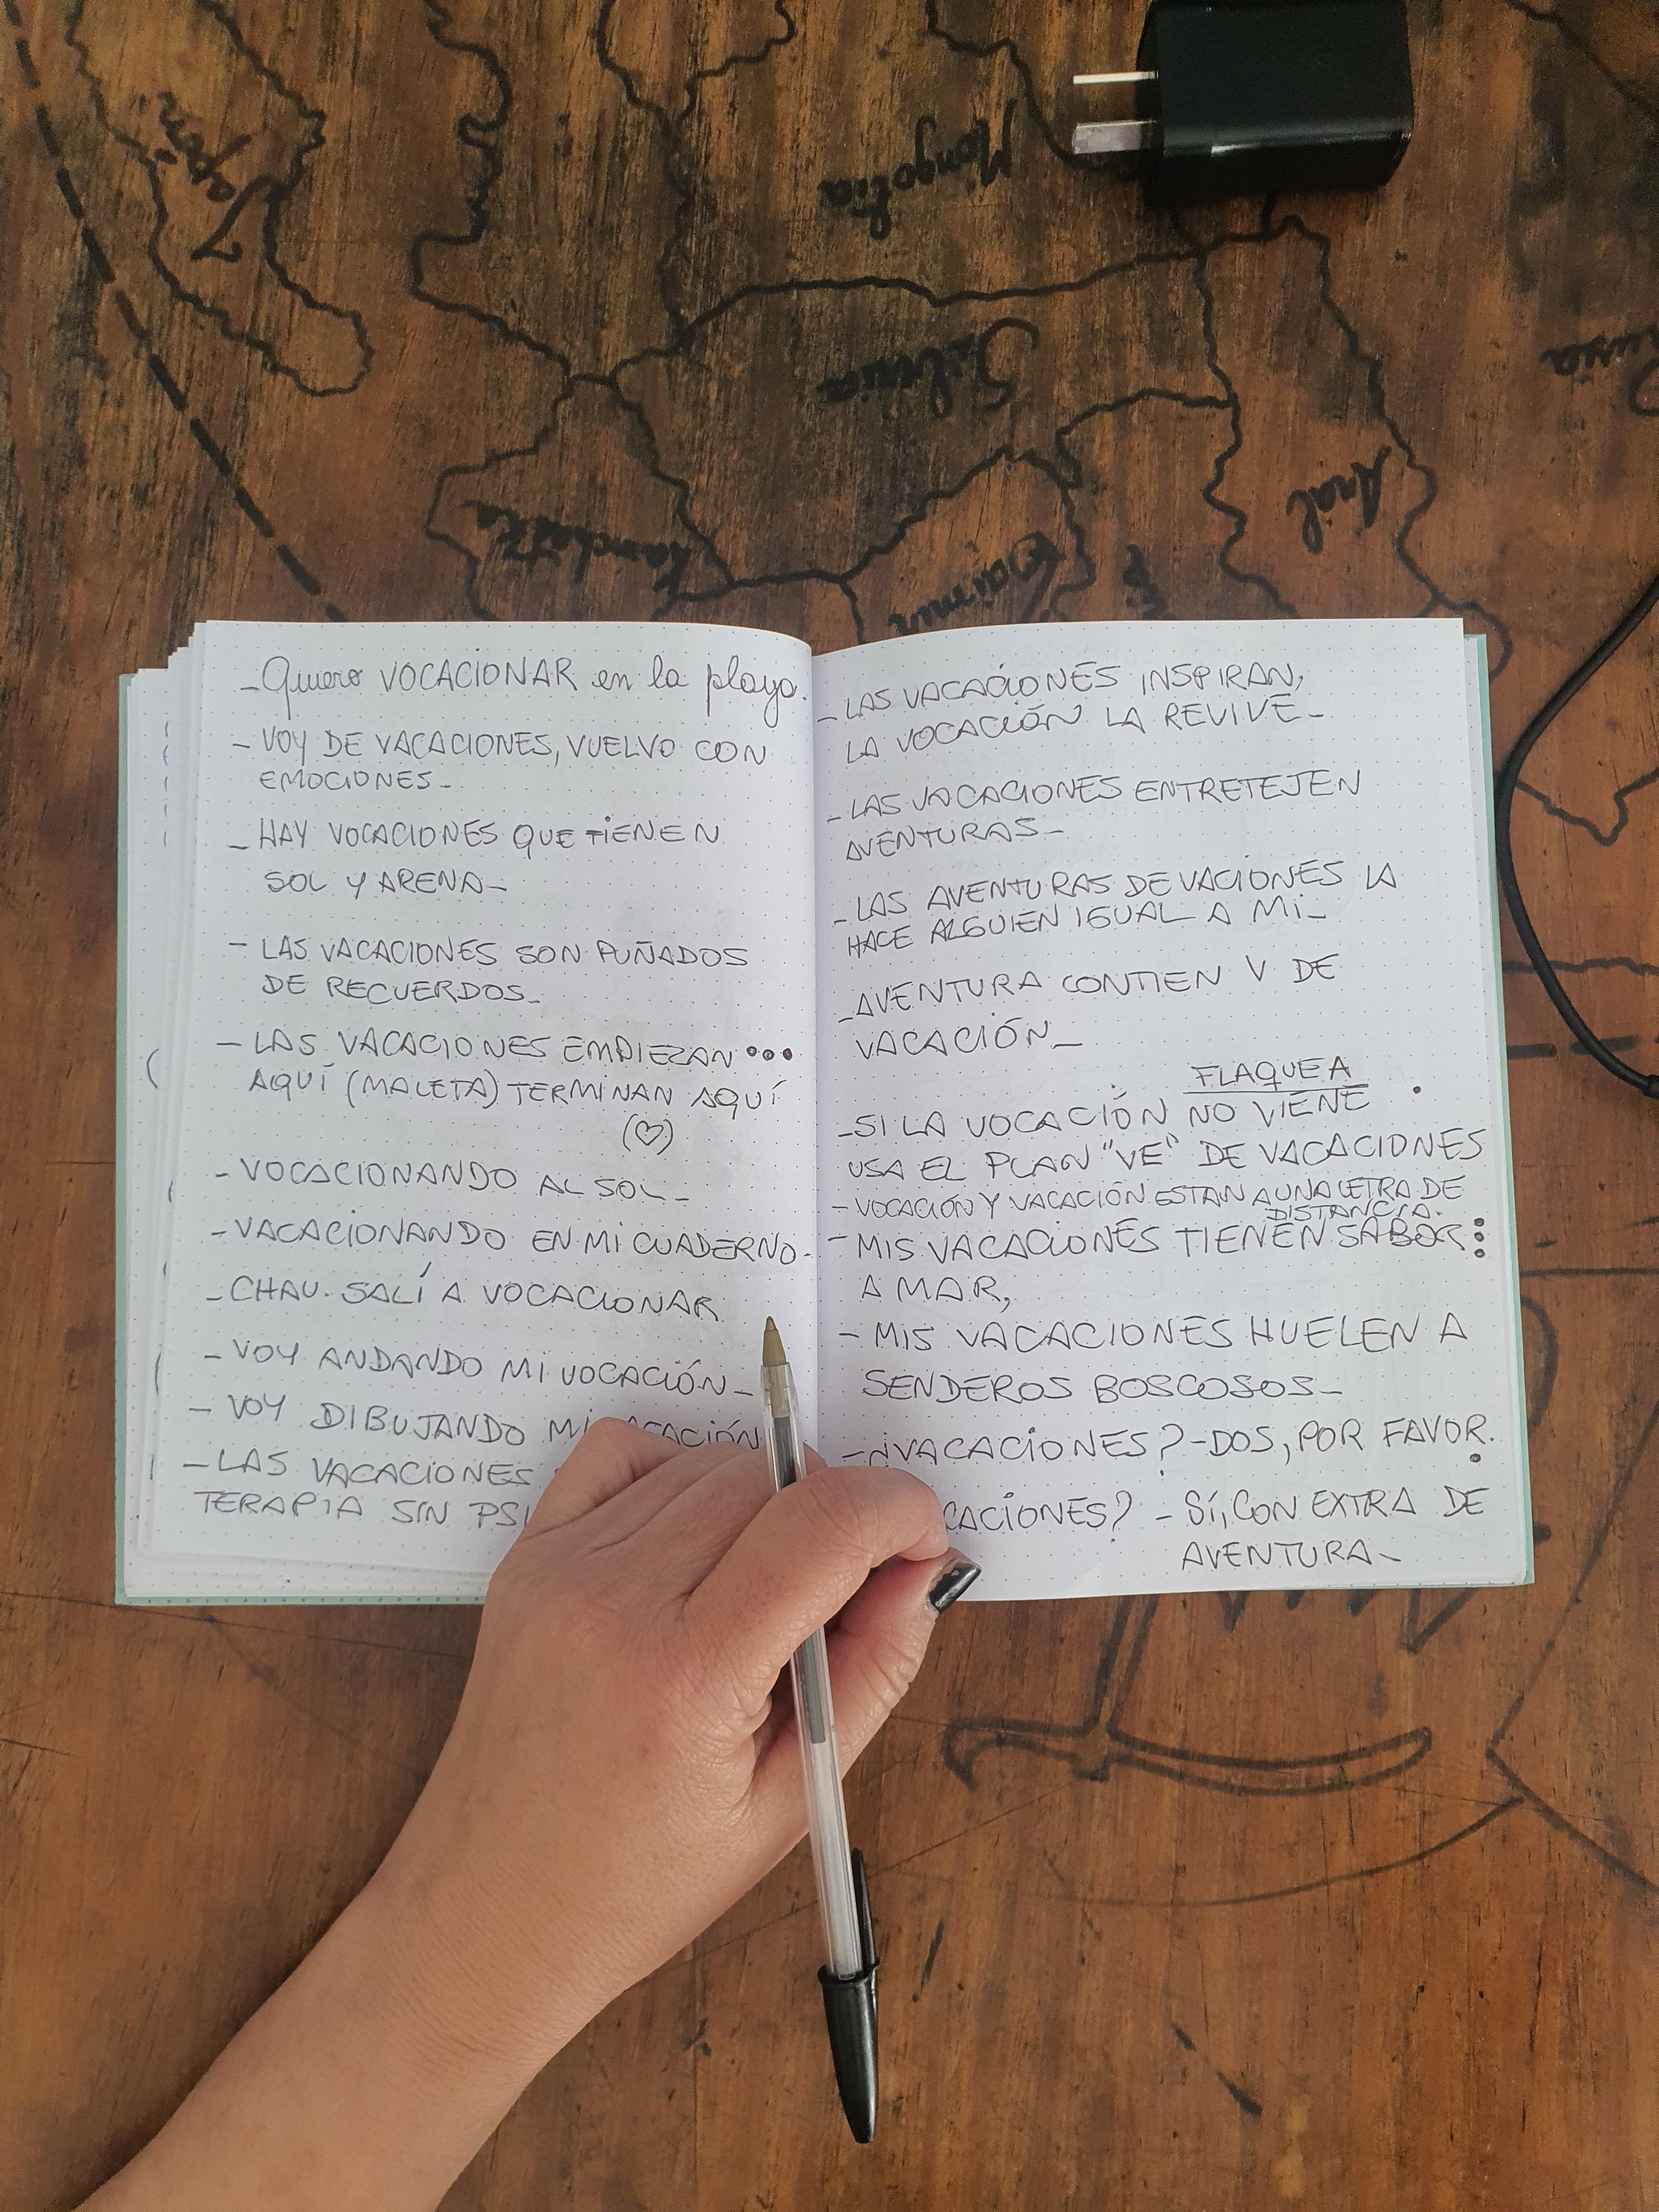 Japón
Mongolia
Siberia
Kamchatka
Aral
_ Quiero VOCACIONAR en la playa.
- VOY DE VACACIONES, VUELVO CON
EMOCIONES_
_ HAY VOCACIONES QUE TIENEN
SOL Y ARENA_
- LAS VACACIONES SON PUÑADOS
DE RECUERDOS_
- LAS VACACIONES EMPIEZAN •••
AQUÍ (MALETA) TERMINAN AQUÍ
(♡)
- VOCACIONANDO AL SOL_
- VACACIONANDO EN MI CUADERNO-
- CHAU. SALÍ A VOCACIONAR
- VOY ANDANDO MI VOCACIÓN_
- VOY DIBUJANDO
- LAS VACACIONES
TERAPIA SIN
_ LAS VACACIONES INSPIRAN,
LA VOCACIÓN LA REVIVE_
_ LAS VACACIONES ENTRETEJEN
AVENTURAS_
_ LAS AVENTURAS DE VACIONES LA
HACE ALGUIEN IGUAL A MI_
_ AVENTURA CONTIEN V DE
VACACIÓN_
FLAQUEA
_ SI LA VOCACIÓN NO VIENE
USA EL PLAN "VE" DE VACACIONES
- VOCACIÓN Y VACACIÓN ESTAN A UNA LETRA DE
DISTANCIA.
- MIS VACACIONES TIENEN SABOR
A MAR,
- MIS VACACIONES HUELEN A
SENDEROS BOSCOSOS_
- ¿VACACIONES? - DOS, POR FAVOR.
CACIONES? - SÍ, CON EXTRA DE
AVENTURA_